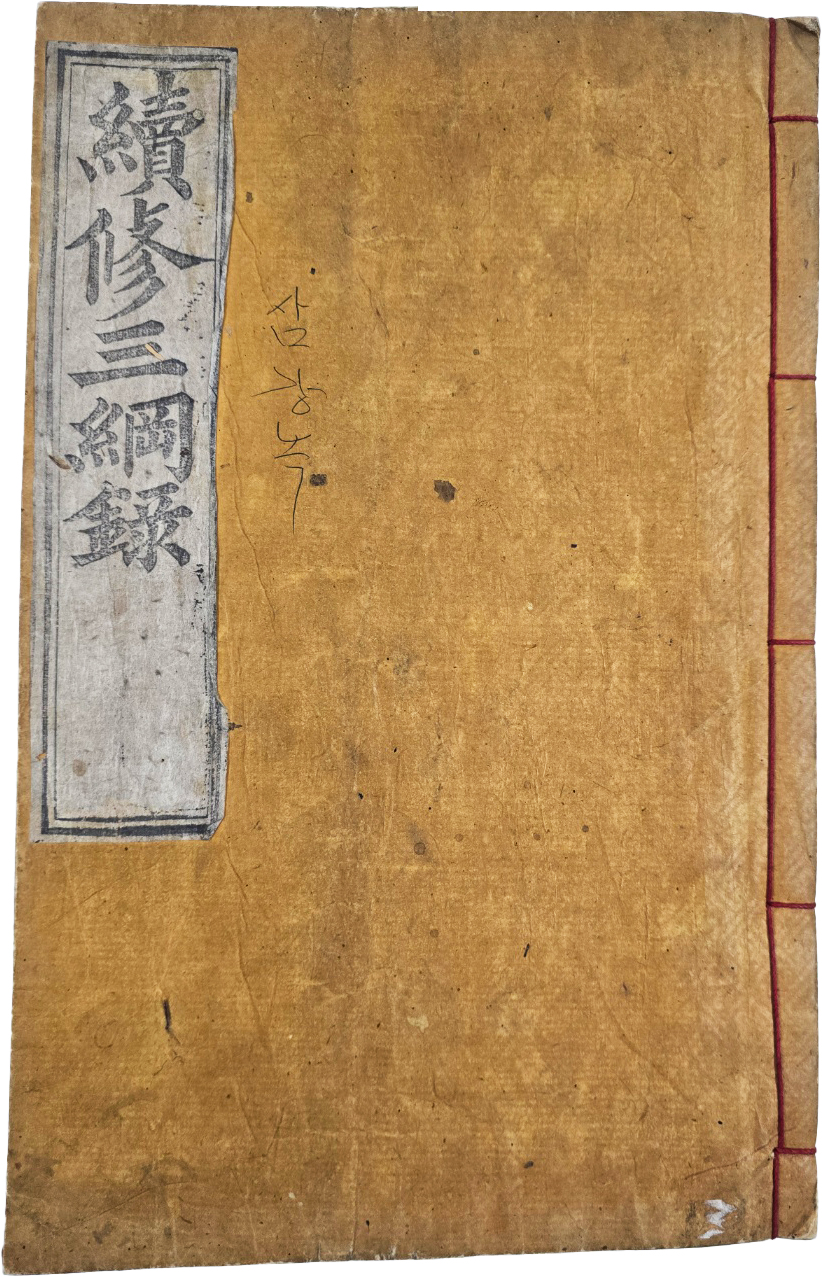 續修三綱錄
삼강녹